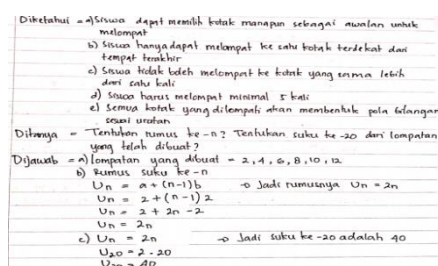 Diketahui = a) Siswa dapat memilih kotak manapun sebagai awalan untuk
melompat
b) Siswa hanya dapat melompat ke satu kotak terdekat dari
tempat terakhir
c) Siswa tidak boleh melompat ke kotak yang sama lebih
dari satu kali
d) Siswa harus melompat minimal 5 kali
e) Semua kotak yang dilompati akan membentuk pola bilangan
sesuai urutan
Ditanya = Tentukan rumus ke-n? Tentukan suku ke-20 dari lompatan
yang telah dibuat?
Dijawab = a) lompatan yang dibuat = 2, 4, 6, 8, 10, 12
b) Rumus suku ke-n
Un = a + (n-1) b → Jadi rumusnya Un = 2n
Un = 2 + (n-1) 2
Un = 2 + 2n - 2
Un = 2n
c) Un = 2n → Jadi suku ke-20 adalah 40
U20 = 2 . 20
U20 = 40